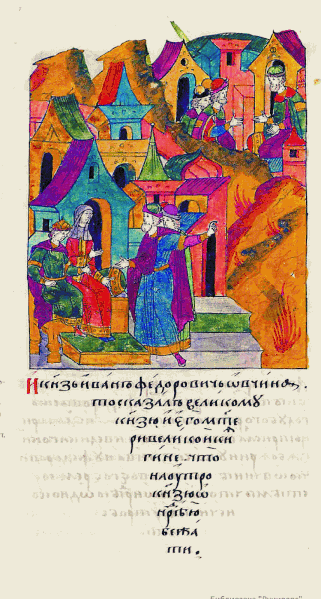 И кнзь иванъ ѳедоровичь ѡвчина.
то сказалъ великомꙋ
кнзю и его мате
ри великои кнѧ
гине. что
наутро
кнзю ѡ
ндрѣю
бежа
ти.
Библиотека "Руниверс"